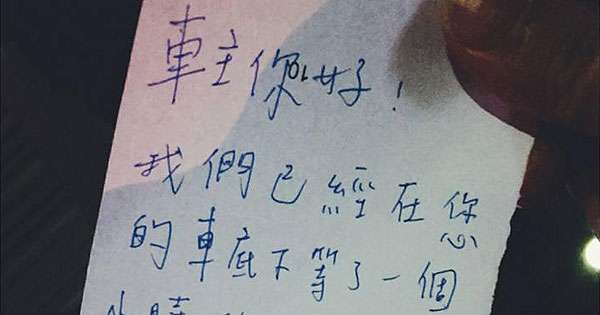 車主您好!
我們已經在您
的車底下等了一個
小時